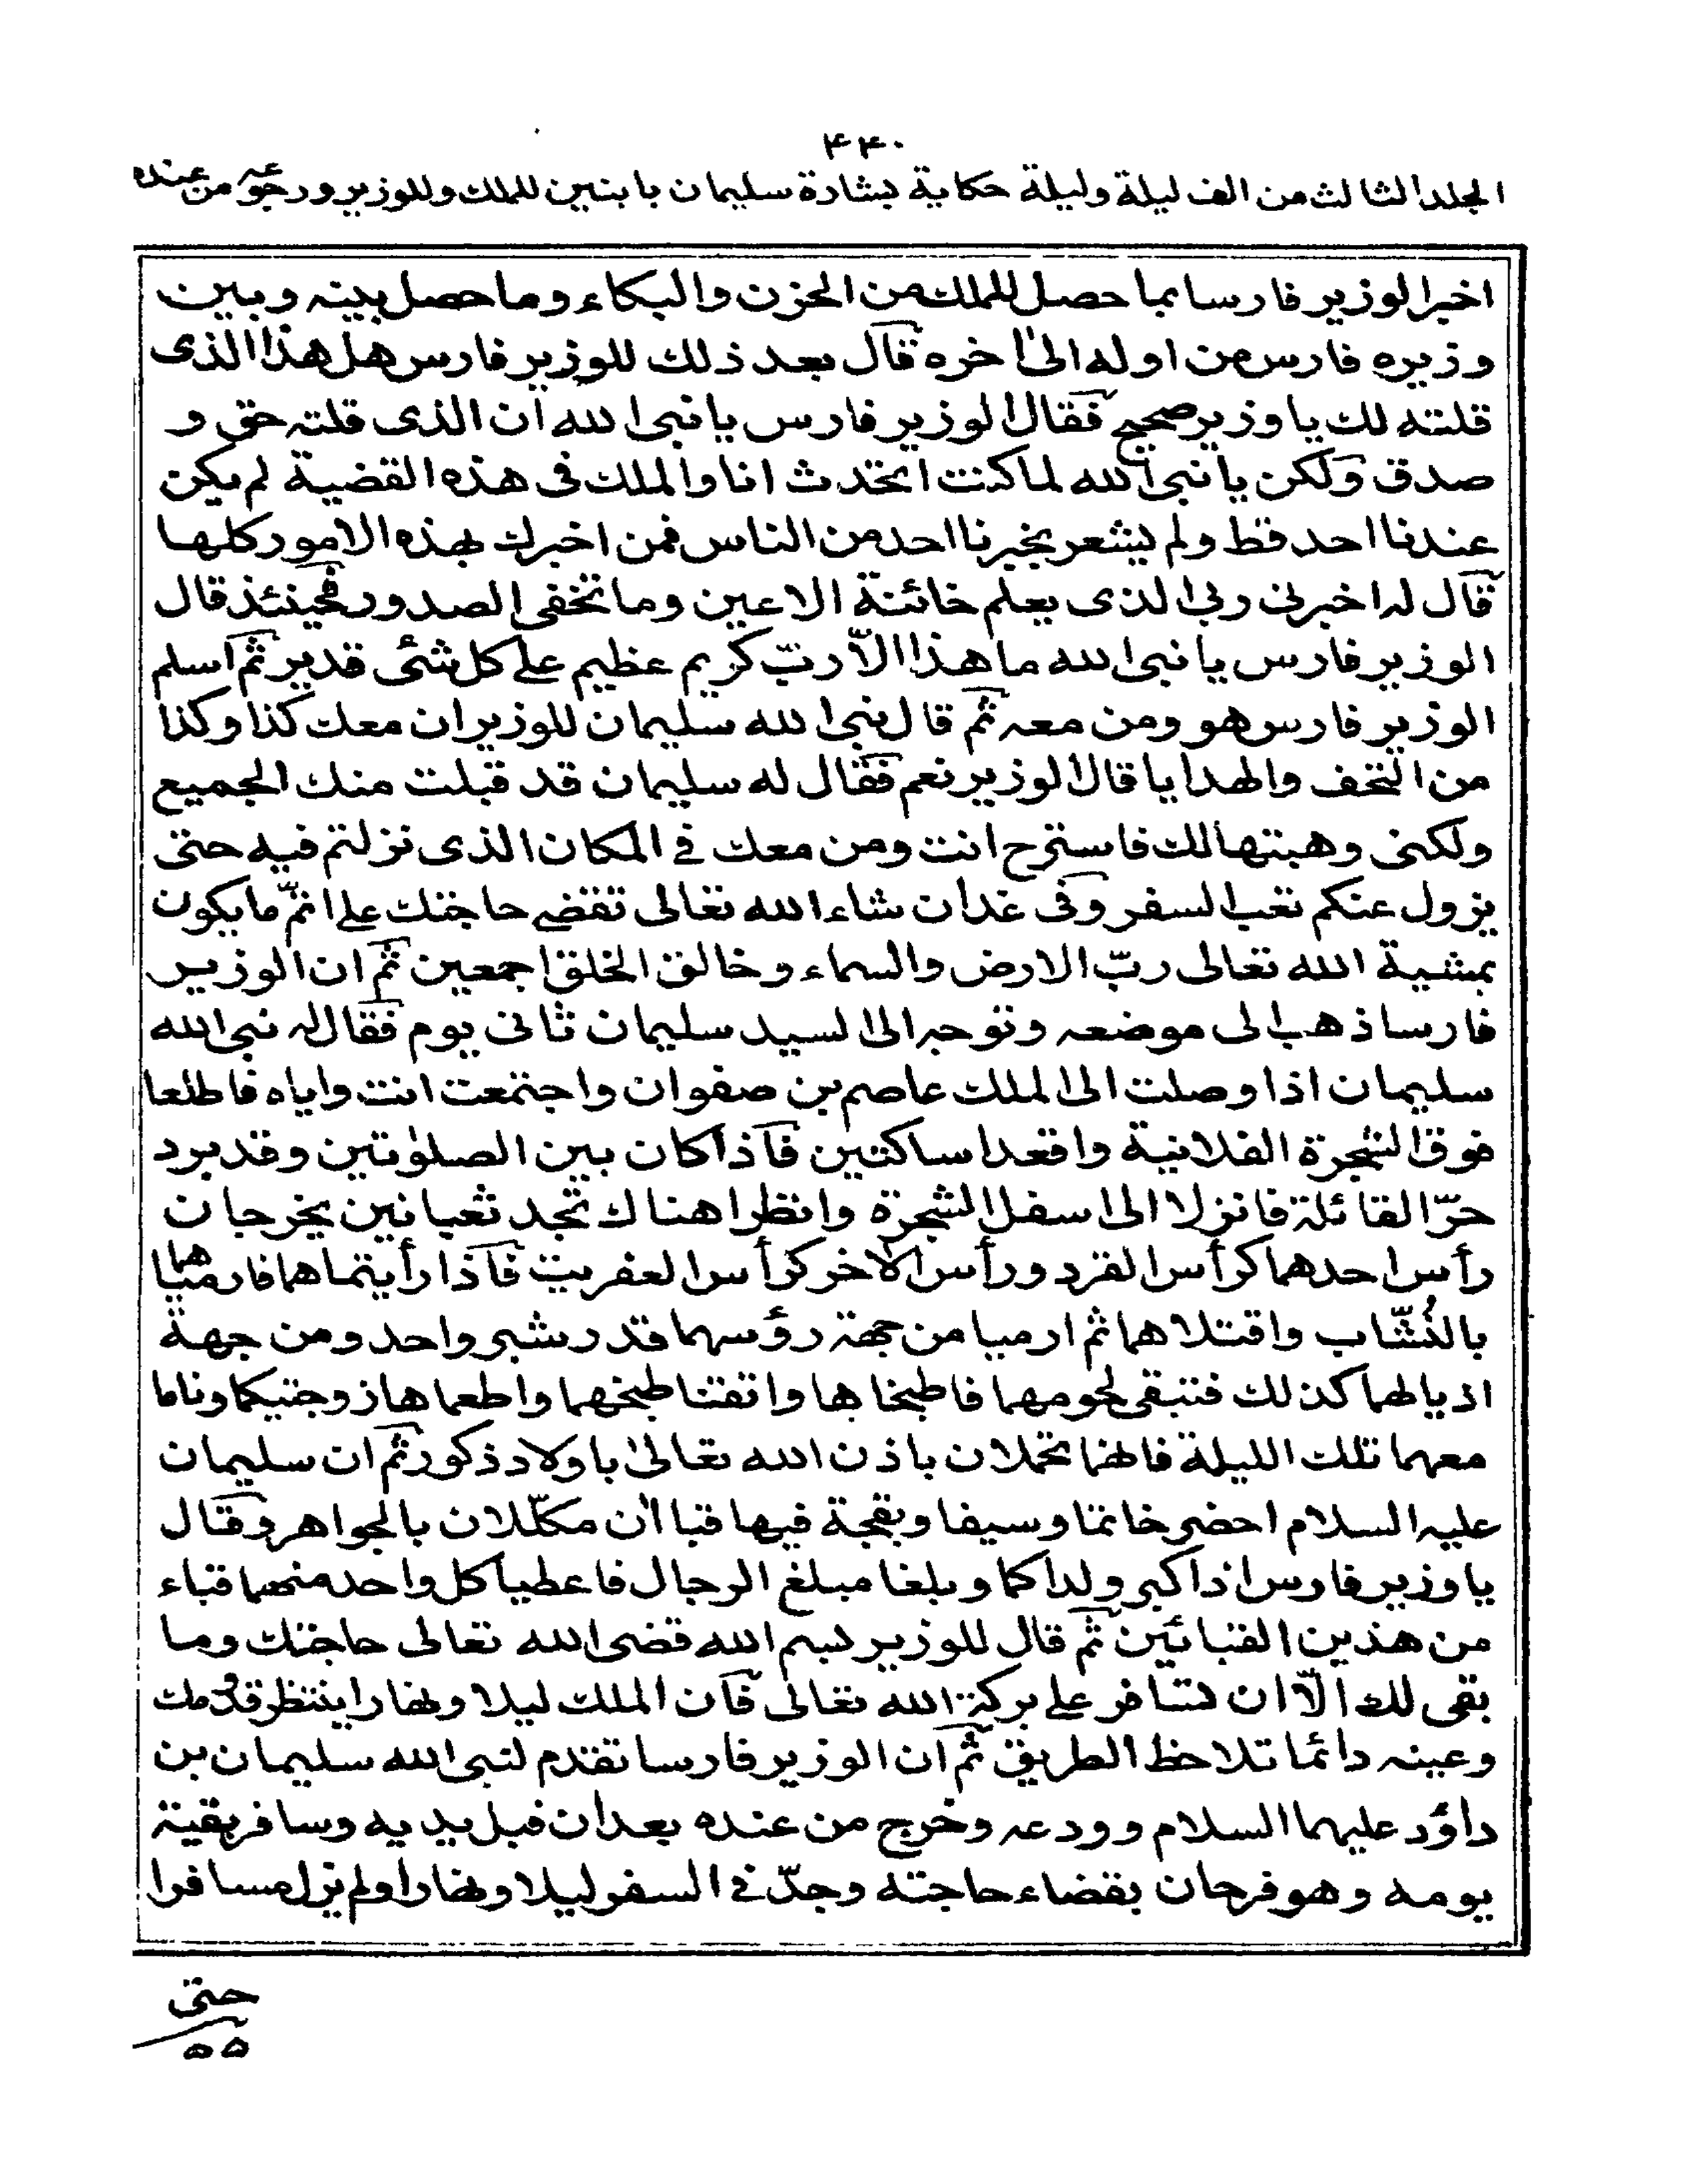 ٤٤٠
المجلد الثالث من الف ليلة وليلة حكاية بشارة سليمان بابنين للملك وللوزير ورجوعه من عنده
اخبر الوزير فارسا بما حصل للملك من الحزن والبكاء وما حصل بينه وبين
وزيره فارس من اوله الى اخره قال بعد ذلك للوزير فارس هل هذا الذى
قلته لك يا وزير صحيح فقال الوزير فارس يا نبى الله ان الذى قلته حق و
صدق ولكن يا نبى الله لما كنت اتحدث انا والملك فى هذه القضية لم يكن
عندنا احد قط ولم يشعر بخبرنا احد من الناس فمن اخبرك بهذه الامور كلها
قال له اخبرنى ربى الذى يعلم خائنة الاعين وما تخفى الصدور فحينئذ قال
الوزير فارس يا نبى الله ما هذا الّا ربّ كريم عظيم على كل شئى قدير ثم اسلم
الوزير فارس هو ومن معه ثم قال نبى الله سليمان للوزير ان معك كذا وكذا
من التحف والهدايا قال الوزير نعم فقال له سليمان قد قبلت منك الجميع
ولكنى وهبتها لك فاسترح انت ومن معك فى المكان الذى نزلتم فيه حتى
يزول عنكم تعب السفر وفى غد ان شاء الله تعالى تقضى حاجتك على اتمّ ما يكون
بمشية الله تعالى ربّ الارض والسماء وخالق الخلق اجمعين ثم ان الوزير
فارسا ذهب الى موضعه وتوجه الى السيد سليمان ثانى يوم فقال له نبى الله
سليمان اذا وصلت الى الملك عاصم بن صفوان واجتمعت انت واياه فاطلعا
فوق الشجرة الفلانية واقعدا ساكتين فاذا كان بين الصلوٰتين وقد برد
حرّ القائلة فانزلا الى اسفل الشجرة وانظرا هناك تجد ثعبانين يخرجان
رأس احدهما كرأس القرد ورأس الاخر كرأس العفريت فاذا رأيتماهما فارمياهما
بالنُشّاب واقتلاهما ثم ارميا من جهة رؤسهما قدر شبر واحد ومن جهة
اذيالهما كذلك فتبقى لحومهما فاطبخاها واتقنا طبخهما واطعماها زوجتيكما وناما
معهما تلك الليلة فانهما تحملان باذن الله تعالىٰ باولاد ذكور ثم ان سليمان
عليه السلام احضر خاتما وسيفا وبقجة فيها قباآن مكلّلان بالجواهر وقال
يا وزير فارس اذا كبر ولداكما وبلغا مبلغ الرجال فاعطيا كل واحد منهما قباء
من هذين القبائين ثم قال للوزير بسم الله قضى الله تعالى حاجتك وما
بقى لك الّا ان تسافر على بركة الله تعالى فان الملك ليلا ونهارا ينتظر قدومك
وعينه دائما تلاحظ الطريق ثم ان الوزير فارسا تقدم لنبى الله سليمان بن
داؤد عليهما السلام وودعه وخرج من عنده بعد ان قبل يديه وسافر بقية
يومه وهو فرحان بقضاء حاجته وجدّ فى السفر ليلا ونهارا ولم يزل مسافرا
حتى
٥٥